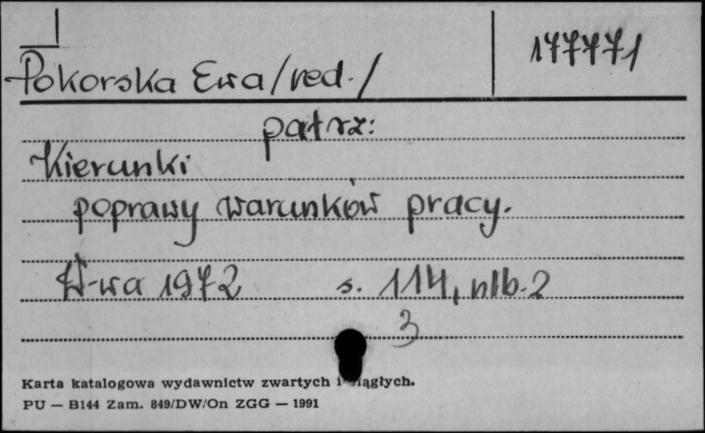 177771
Pokorska Ewa /red./
patrz:
Kierunki
poprawy warunków pracy.
W-wa 1972 s. 114, nlb. 2
3
Karta katalogowa wydawnictw zwartych i ciągłych.
PU — B144 Zam. 849/DW/On ZGG — 1991